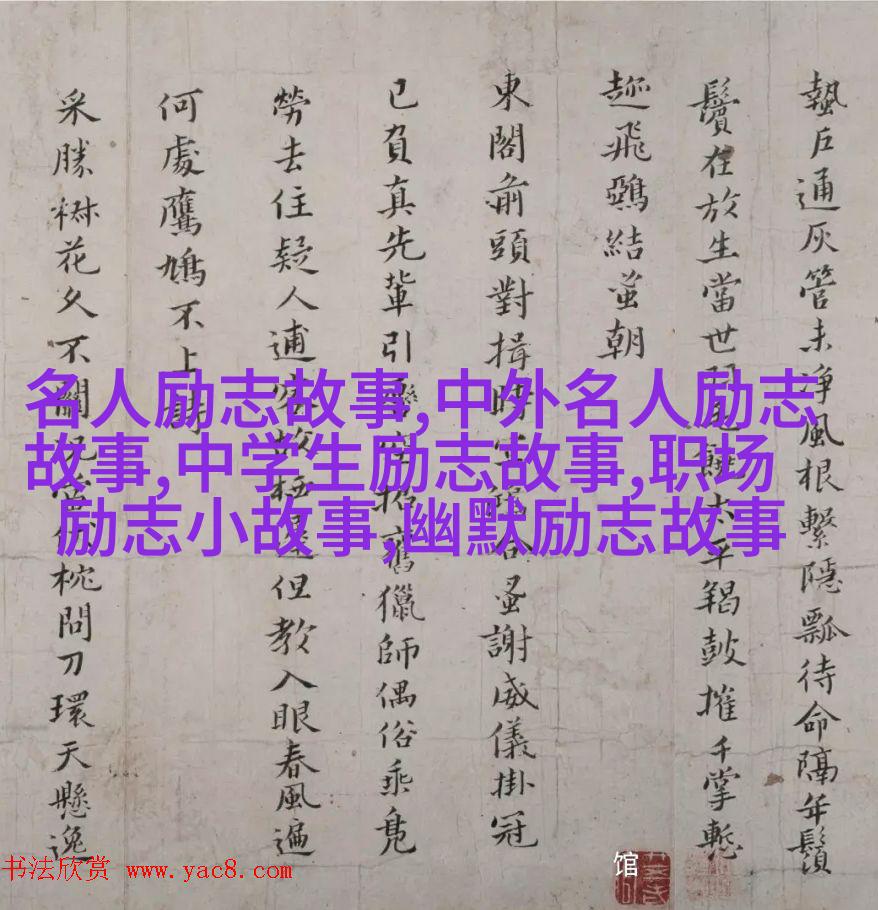 蟄戶通灰管未淨風根繫隱瓢待命隔年鬚
鬢在放生當世太平羯鼓摧千掌慙
飛鴉結蚤朝
東閣前頭對揖時蚤謝威儀掛冠
已負真先輩引招舊獵師偶俗乘凫
勞去住疑人逋故但教入眼春風遍
何處鷹鳩不上詩
采勝樹花久不關枕問刀環天懸逸
名人励志故事,中外名人励志
故事,中学生励志故事,职场
励志小故事,幽默励志故事
馆
书法欣赏 www.yac8.com